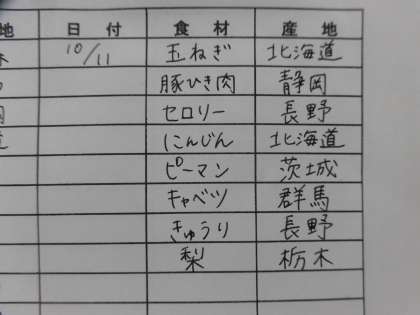 地 日付 食材 産地
10/11 玉ねぎ 北海道
豚ひき肉 静岡
セロリー 長野
にんじん 北海道
ピーマン 茨城
キャベツ 群馬
きゅうり 長野
梨 栃木